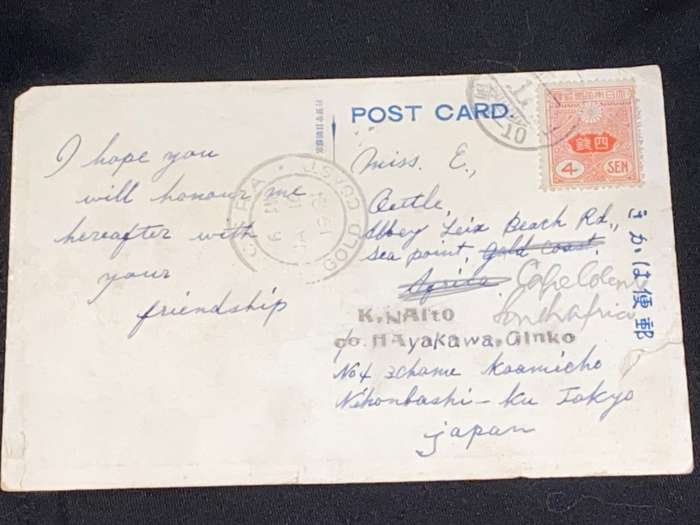 POST CARD
大日本帝国郵便
四銭
4 SEN
きかは便郵
GOLD COAST
I hope you
will honour me
hereafter with
your
friendship
Miss. E.,
Abbey Leix Beach Rd.,
Sea point, Gold Coast,
Africa Cape Colony
South Africa
K. NAITO
c/o. HAyakawa, Ginko
No 4 3chome
Nihonbashi-ku Tokyo
Japan